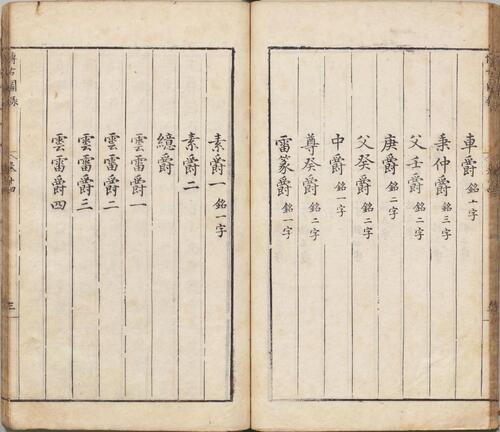 車爵 銘一字
秉仲爵 銘三字
父壬爵 銘二字
庚爵 銘二字
父癸爵 銘二字
中爵 銘一字
尊癸爵 銘二字
雷篆爵 銘一字
素爵一 銘一字
素爵二
繶爵
雲雷爵一
雲雷爵二
雲雷爵三
雲雷爵四
博古圖錄
卷十四
三